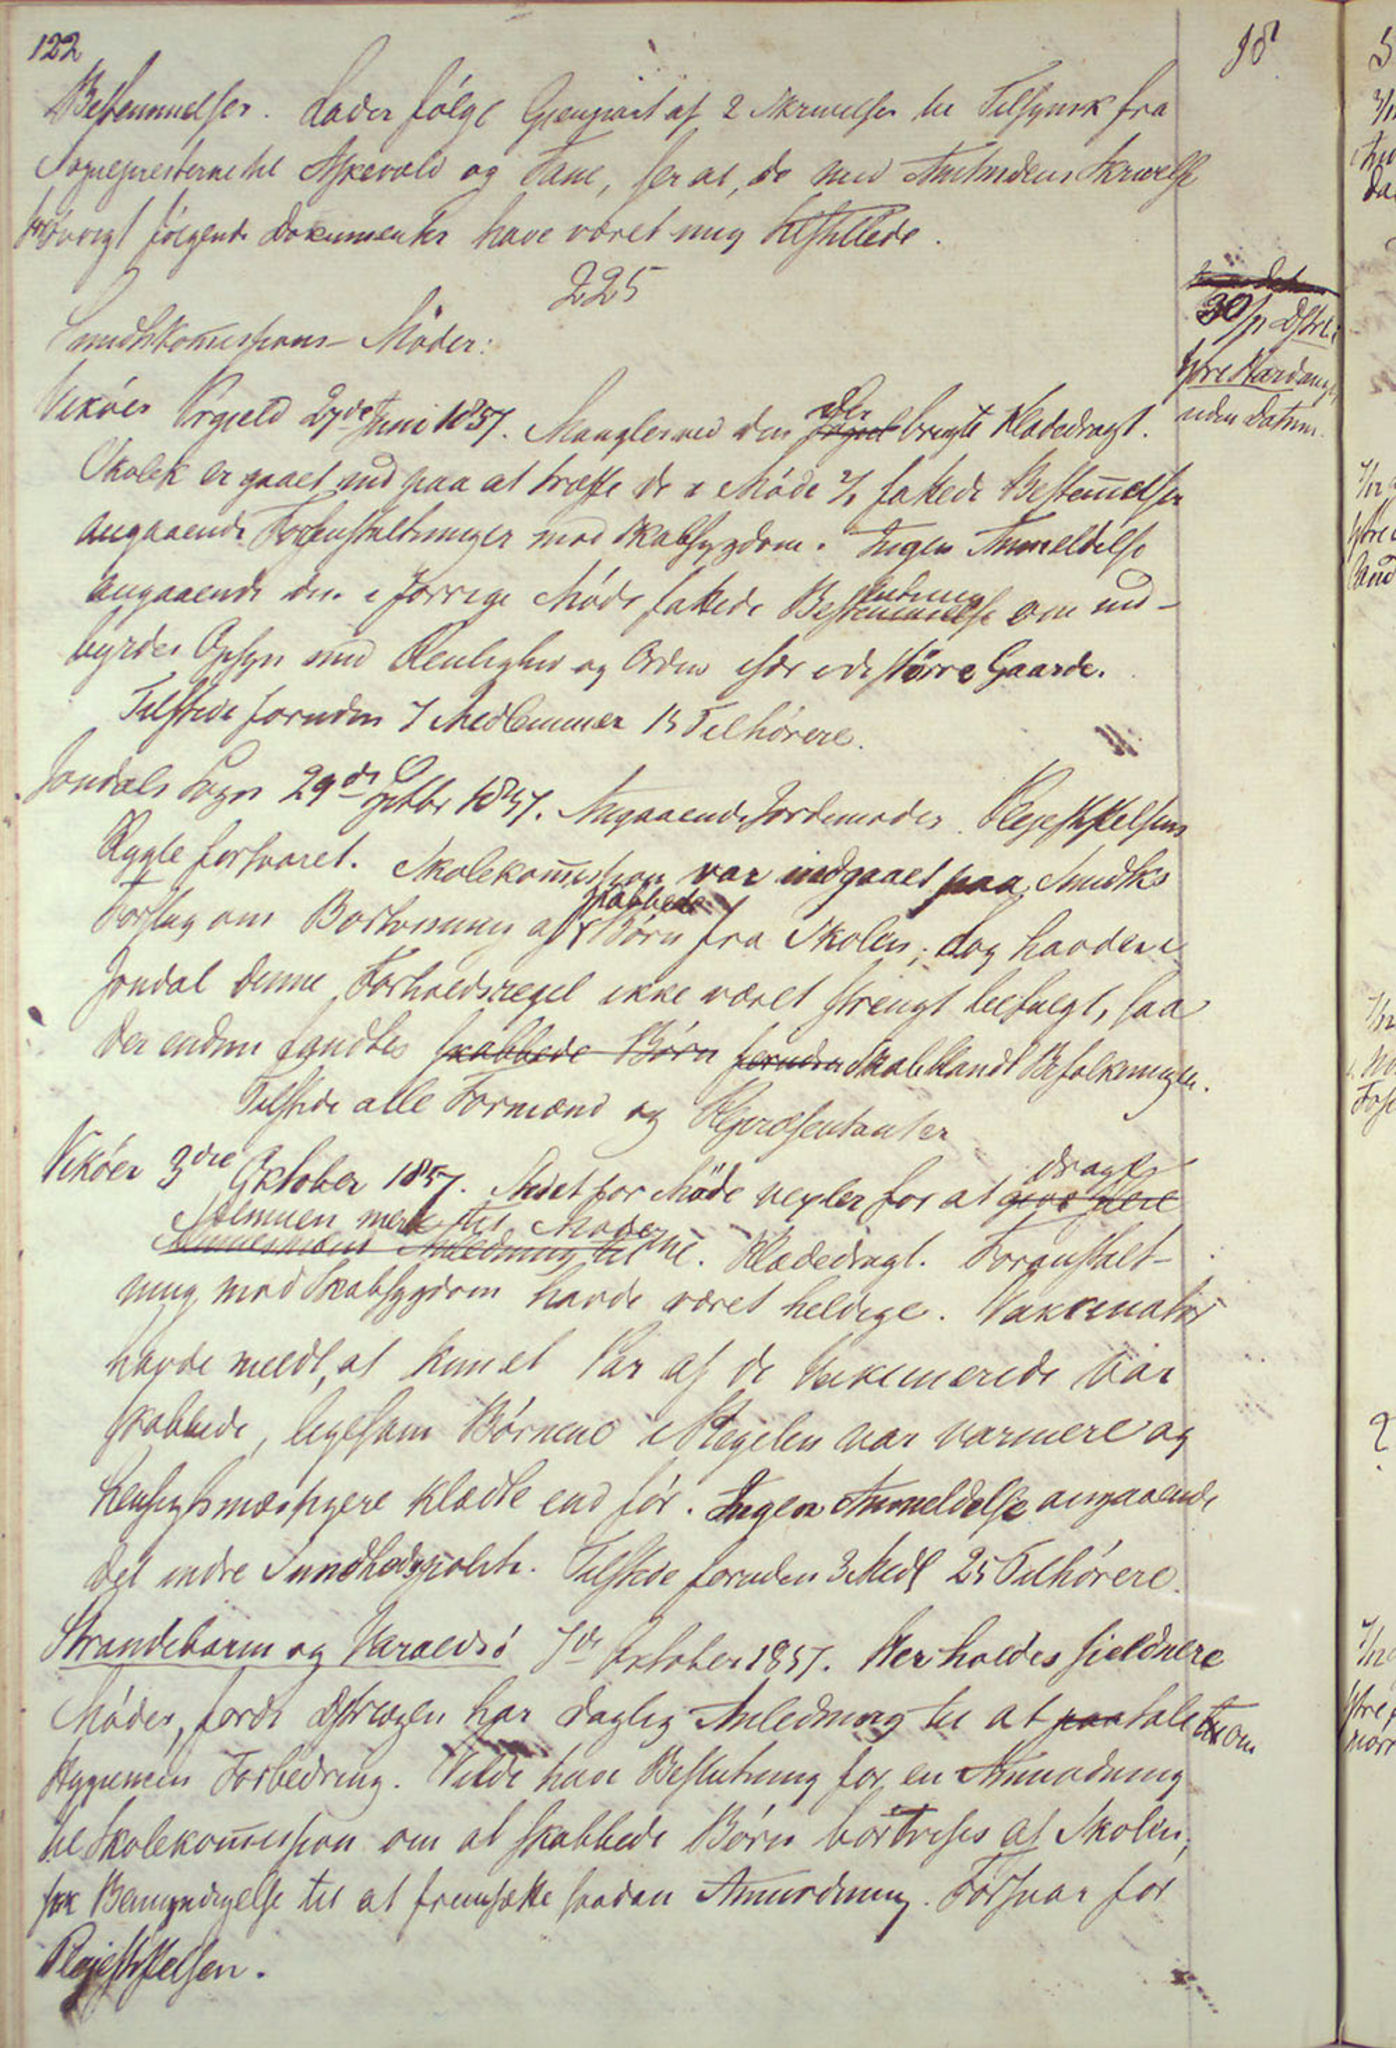 122
18
Bestemmelser. Lader følge Gjenpart af 2 Skrivelser til Tilsynsk fra
Sognepresterne til Askevold og Fane, ser at de med Amtmdens Skrivelse
forøvrigt følgende Dokumenter have været mig tilstillede.
225
Sundhskomissions-Møder:
30/11 Dstrl.
Ytre Hardanger
uden Datum.
Vikøer Prgjeld 27de Juni 1857. Mangler ved den der brugte Klædedragt.
Skolek er gaaet ind paa at træffe de i Møde fattede Bestemelser
angaaende Foranstaltninger mod Skabsygdom. Ingen Anmeldelse
angaaende den i forrige Møde fattede Beslutning om ind-
byrdes Opsyn med Renlighed og Orden især i de større Gaarde.
Tilstede foruden 7 Medlemmer 15 Tilhørere.
Jondals Sogn 29de Septbr 1857. Angaaende Jordemoder. Plejestiftelsen
Rygte forsvaret. Skolekomission var indgaaet paa Sundks
Forslag om Bortvisning af skabbede Børn fra Skolen; dog havde i
Jondal denne Forholdsregel ikke været strengt befulgt, saa
der endnu fandtes skabbede Børn foruden Skab blandt Befolkningen.
Tilstede alle Formænd og Repræsentanter
Vikøer 3die Oktober 1857. Stedet for Møde vexler for at drage
Almuen mere til Møderne. Klædedragt. Foranstalt-
ning mod Skabsygdom havde været heldige. Vakcinatør
havde meldt, at kun et Par af de Vakcinerede var
skabbede, ligesom Børnene i Regelen var varmere og
hensigtsmæssigere klædte end før. Ingen Anmeldelse angaaende
det indre Sundhedspoliti. Tilstede foruden 3 Medl 25 Tilhørere.
Strandebarm og Varaldsø 7de Oktober 1857. Her holdes sjeldnere
Møder, fordi Dstrlægen har daglig Anledning til at paatale om
Hygieinens Forbedring. Vilde have Beslutning for en Anmodning
til Skolekomission om at skabbede Børn bortvises af Skolen;
fik Bemyndigelse til at fremsætte saadan Anmodning. Forsvar for
Plejestiftelsen.